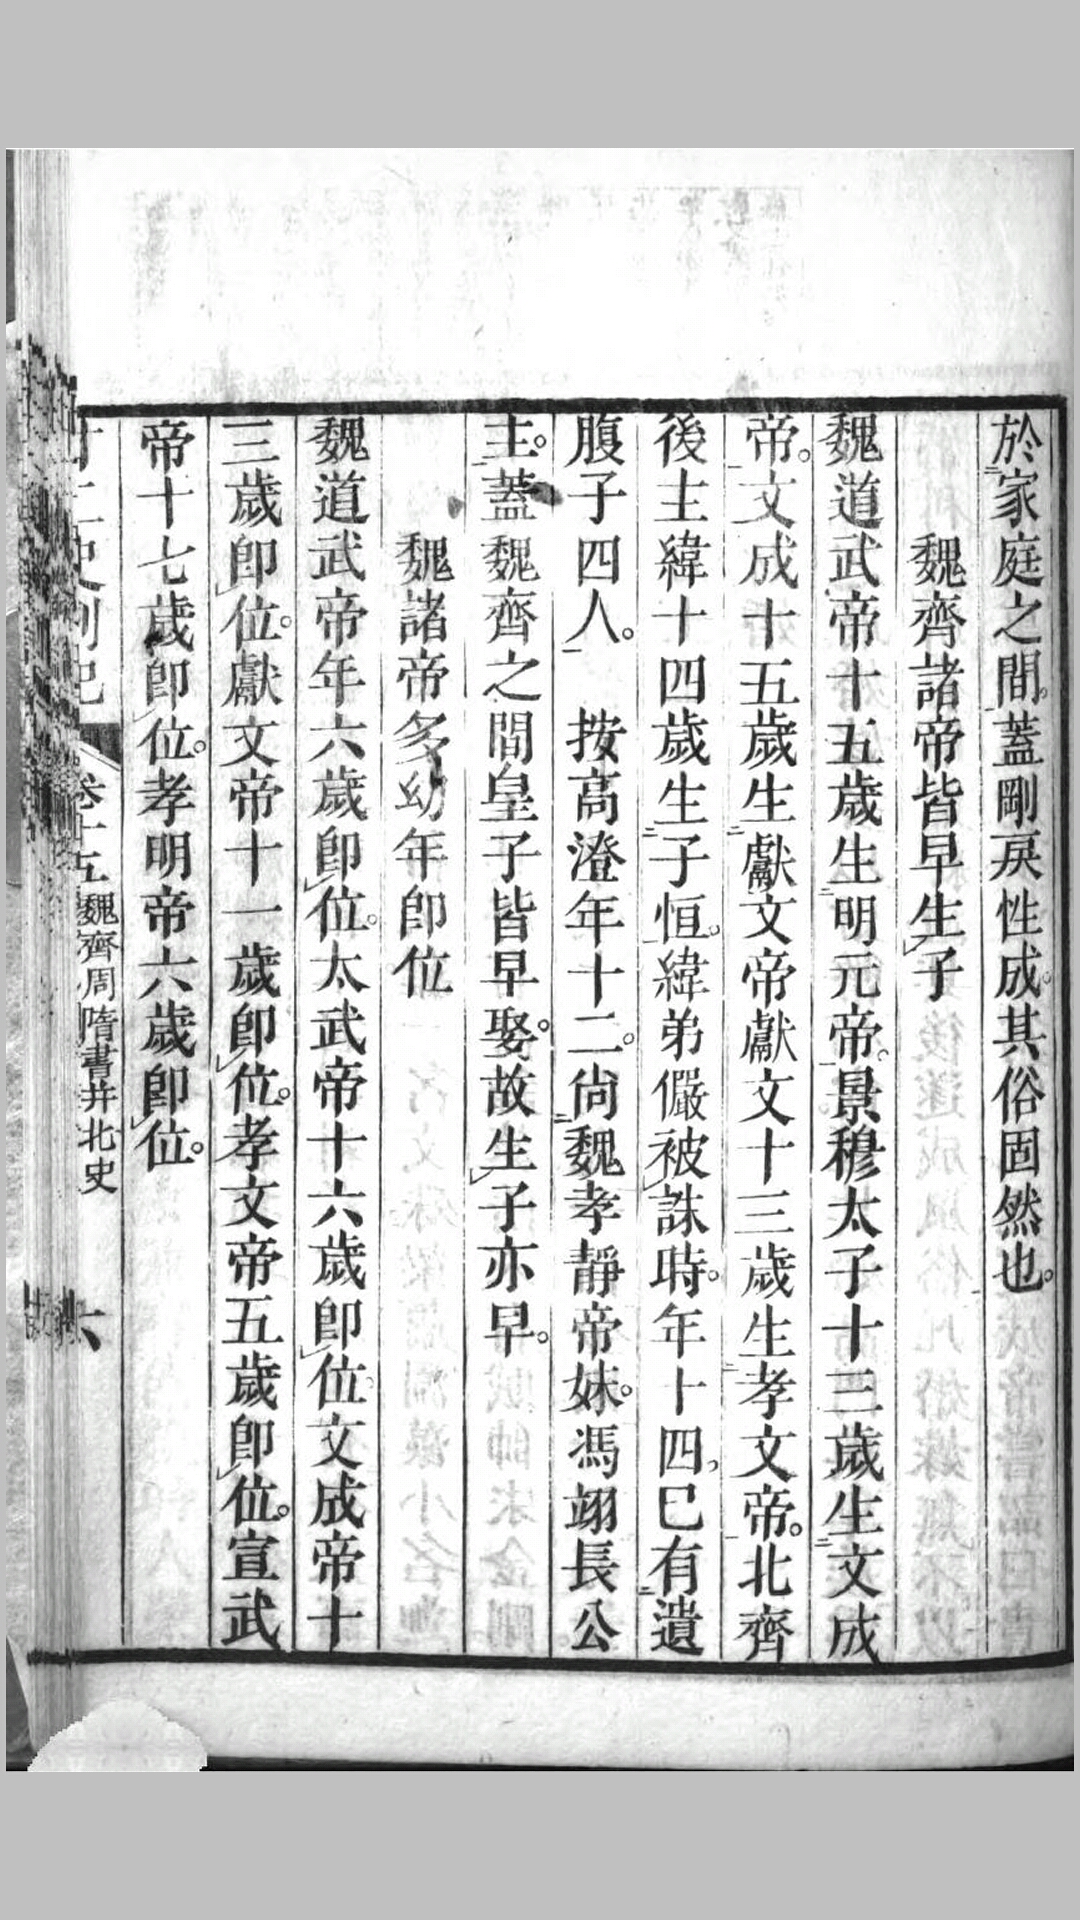 於家庭之間。蓋剛戾性成。其俗固然也。
魏齊諸帝皆早生子
魏道武帝十五歲生明元帝。景穆太子十三歲生文成
帝。文成十五歲生獻文帝獻文十三歲生孝文帝。北齊
後主緯十四歲生子恒。緯弟儼被誅時。年十四。已有遺
腹子四人。按高澄年十二。尙魏孝靜帝妹。馮翊長公
主。蓋魏齊之間皇子皆早娶。故生子亦早。
魏諸帝多幼年卽位
魏道武帝年六歲卽位。太武帝十六歲卽位。文成帝十
三歲卽位。獻文帝十一歲卽位。孝文帝五歲卽位。宣武
帝十七歲卽位。孝明帝六歲卽位。
卷十五 魏齊周隋書并北史 六